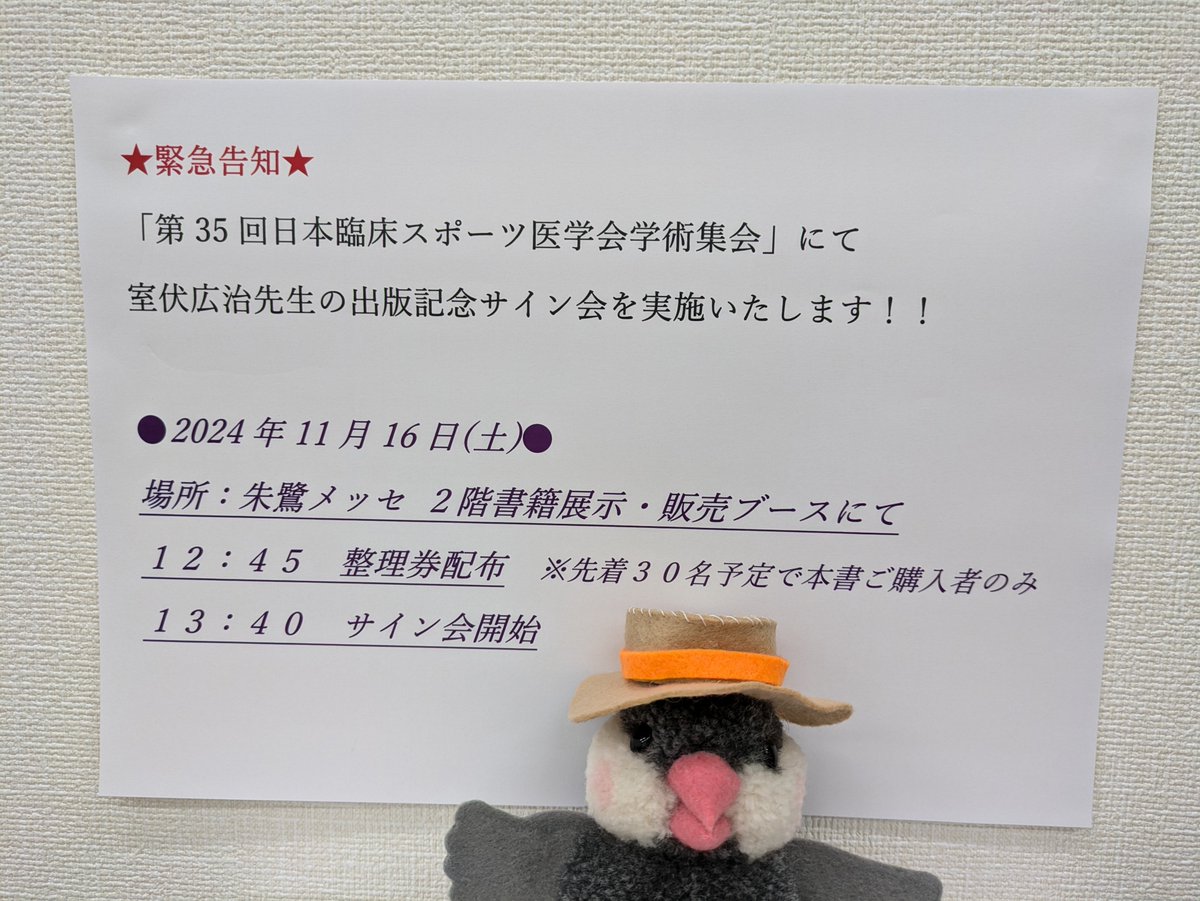 ★緊急告知★
「第 35 回日本臨床スポーツ医学会学術集会」にて
室伏広治先生の出版記念サイン会を実施いたします！！
●2024 年 11 月 16 日(土)●
場所：朱鷺メッセ ２階書籍展示・販売ブースにて
１２：４５　整理券配布　※先着３０名予定で本書ご購入者のみ
１３：４０　サイン会開始